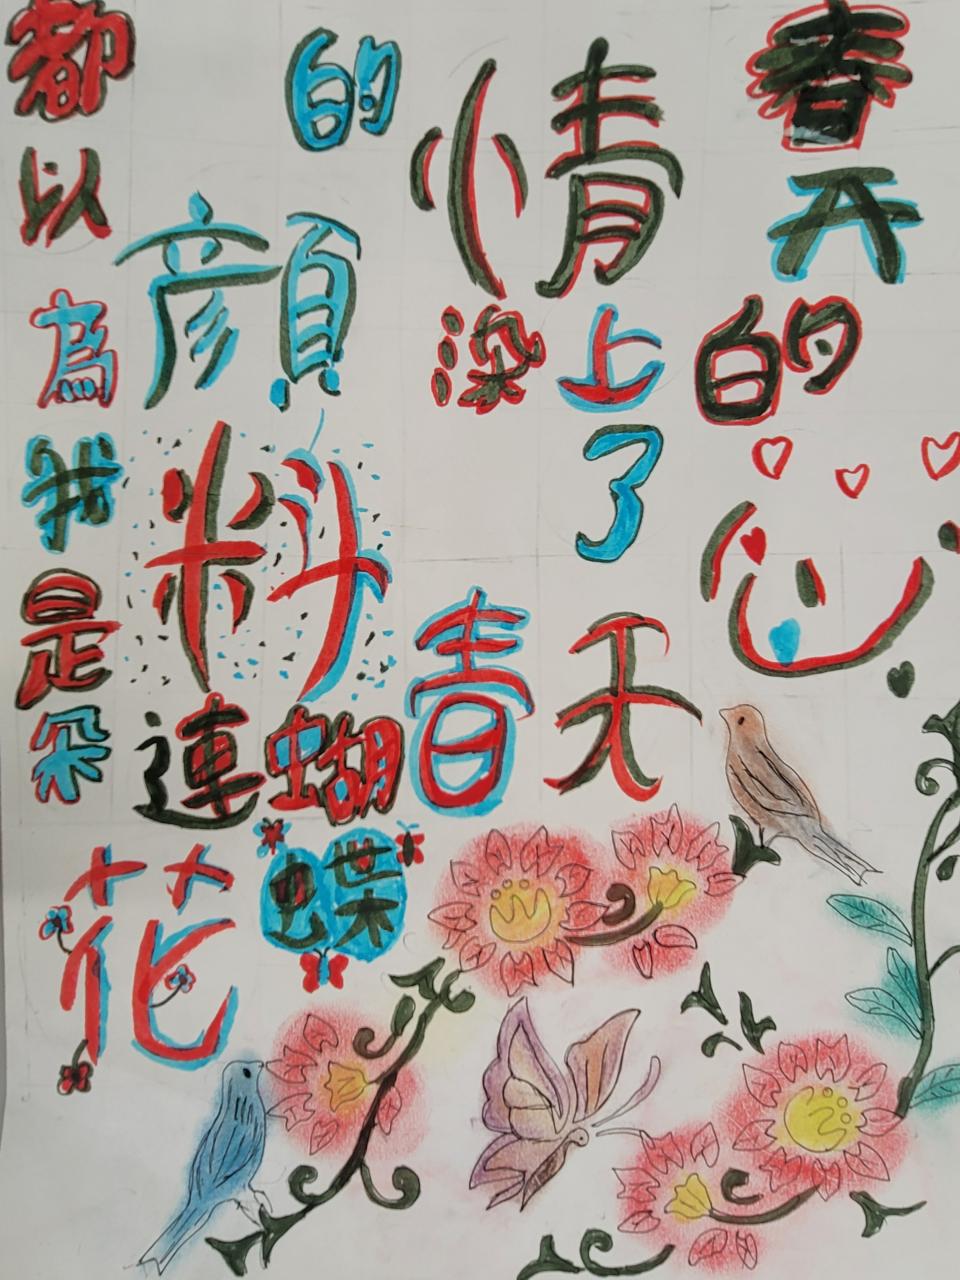 春天的心
情染上了春天
的顏料
連蝴蝶
都以為我是朵花